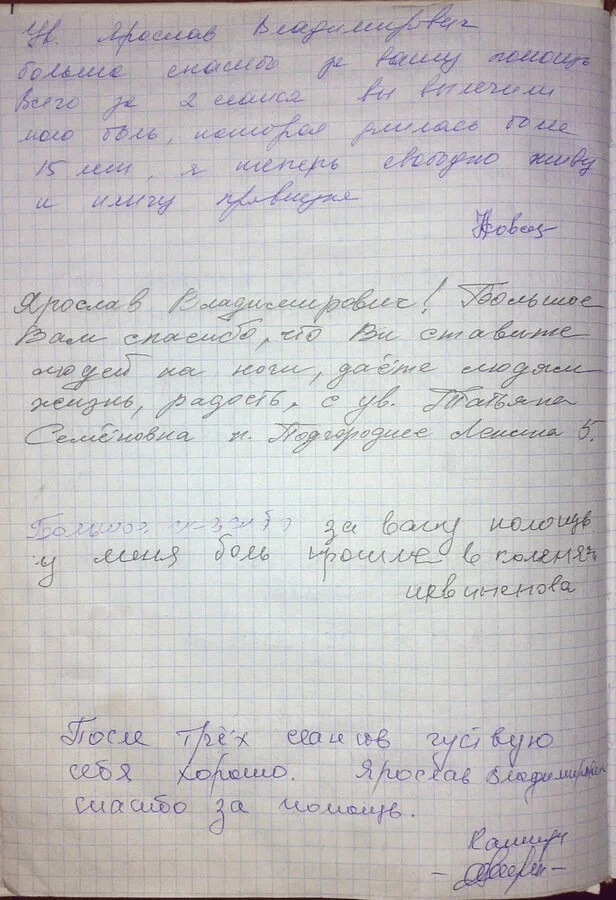 Ув. Ярослав Владимирович
большое спасибо за вашу помощь
Всего за 2 сеанса вы вылечили
мою боль, которая длилась более
15 лет, я теперь свободно живу
и
Ярослав Владимирович! Большое
Вам спасибо, что Вы ставите
людей на ноги, даёте людям
жизнь, радость. с ув. Татьяна
Семёновна п. Подгороднее Ленина 5.
Большое спасибо за вашу помощь
у меня боль прошла в коленях
После трёх сеансов чуствую
себя хорошо. Ярослав Владимирович
спасибо за помощь.